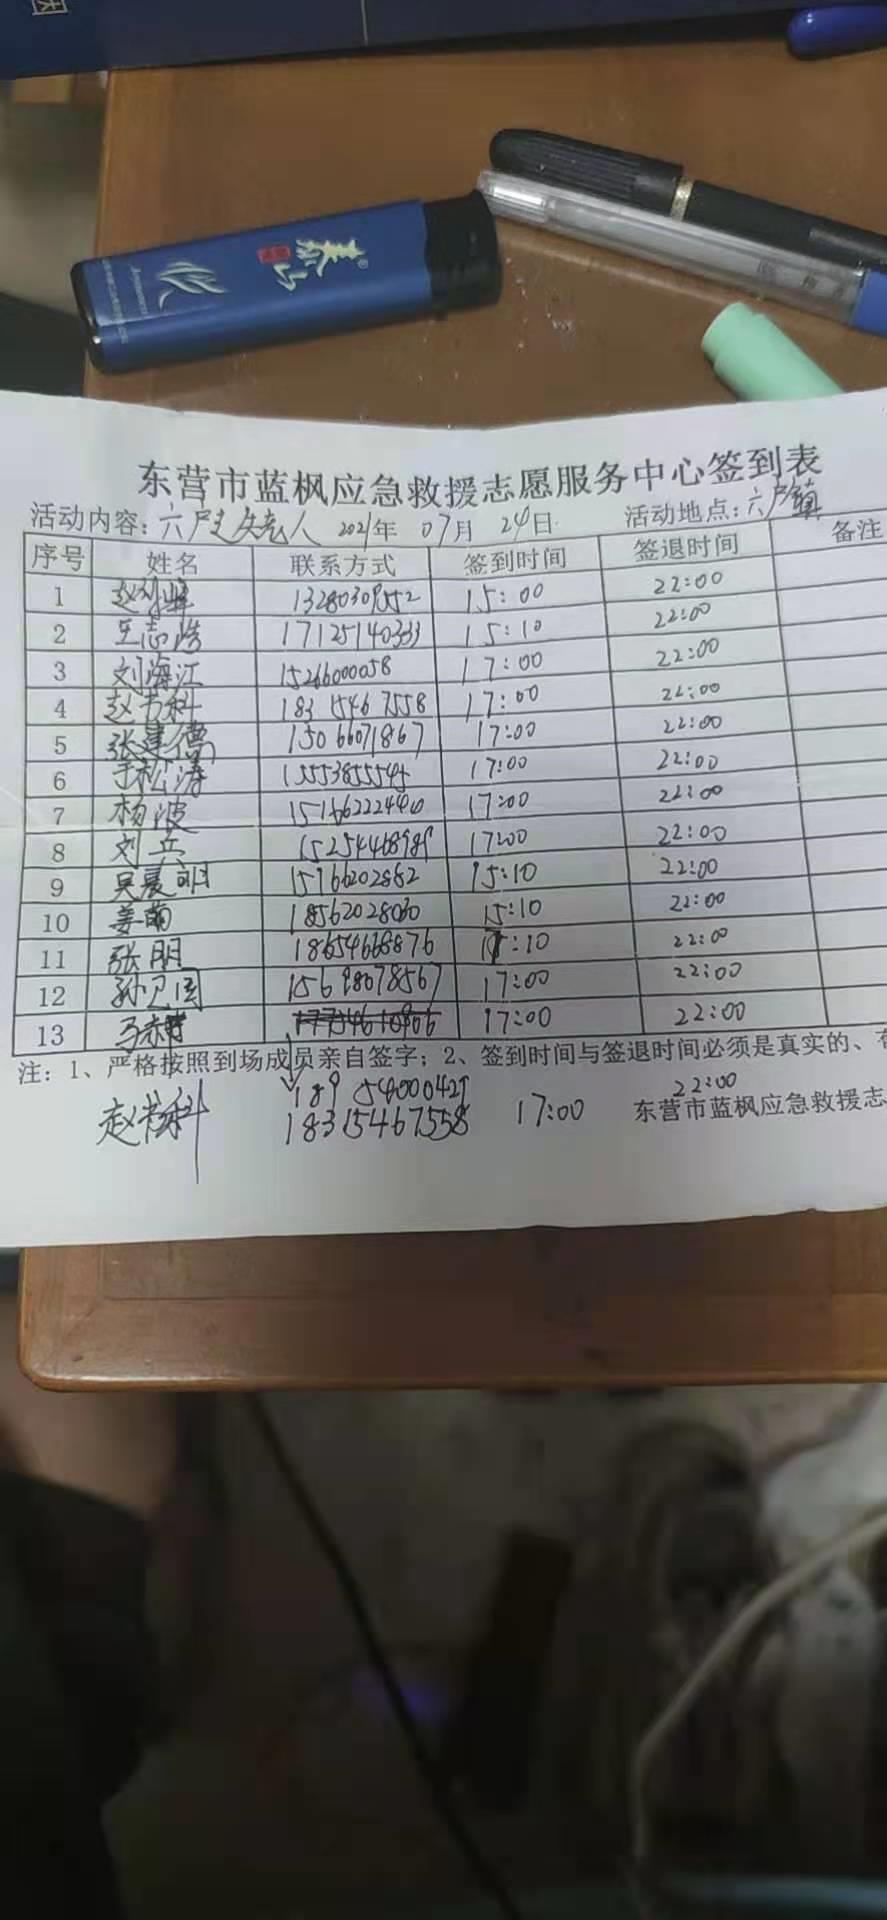 泰山
东营市蓝枫应急救援志愿服务中心签到表
活动内容：六户走失老人 2021年 07月 24日 活动地点：六户镇
序号 姓名 联系方式 签到时间 签退时间 备注
1 15:00 22:00
2 王志浩 17125140333 15:10 22:00
3 刘海江 15266000058 17:00 22:00
4 赵书科 18315467558 17:00 22:00
5 张建儒 15066071867 17:00 22:00
6 于松涛 17:00 22:00
7 杨波 17:00 22:00
8 刘兵 17:00 22:00
9 吴晨明 15966202882 15:10 22:00
10 姜萌 18562028030 15:10 22:00
11 张朋 18654668876 15:10 22:00
12 孙卫国 15698078567 17:00 22:00
13 17:00 22:00
注：1、严格按照到场成员亲自签字；2、签到时间与签退时间必须是真实的、
18954000429
赵书科 18315467558 17:00 22:00
东营市蓝枫应急救援志